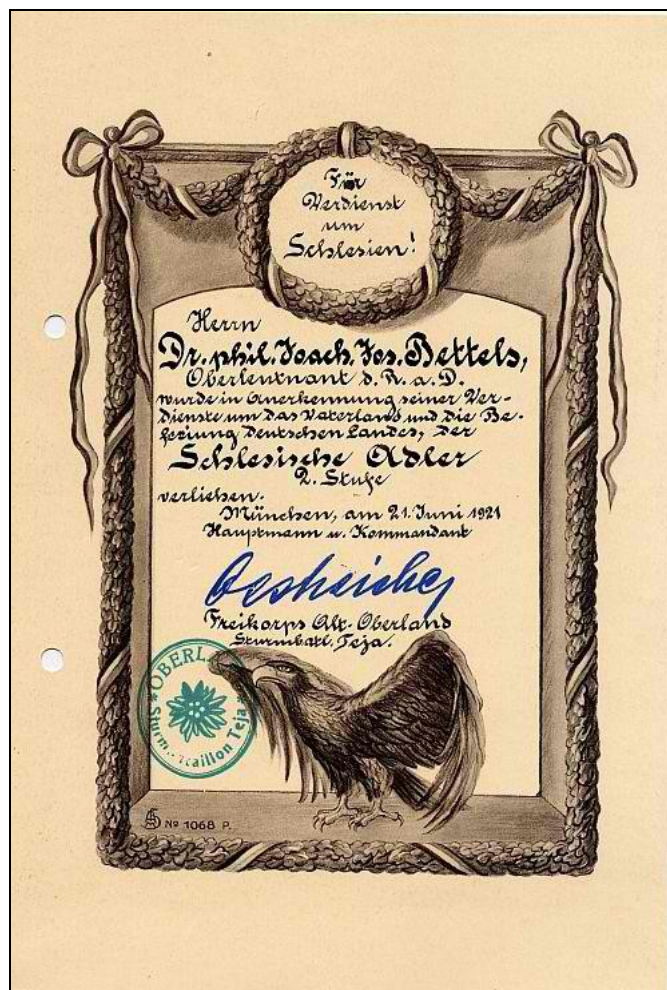 Für
Verdienst
um
Schlesien!
Herrn
Dr. phil. Joach. Jos. Bettels,
Oberleutnant d. R. a. D.
wurde in Anerkennung seiner Ver-
dienste um das Vaterland und die Be-
freiung Deutschen Landes, der
Schlesische Adler
2. Stufe
verliehen.
München, am 21. Juni 1921
Hauptmann u. Kommandant
Freikorps Alt-Oberland
Sturmbatl. Teja.
OBERL
Sturm taillon Teja
No 1068 P.